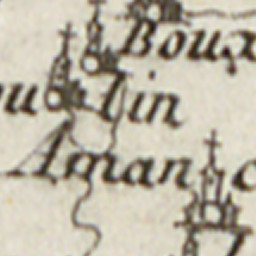 Boux
ou lin
Aman c